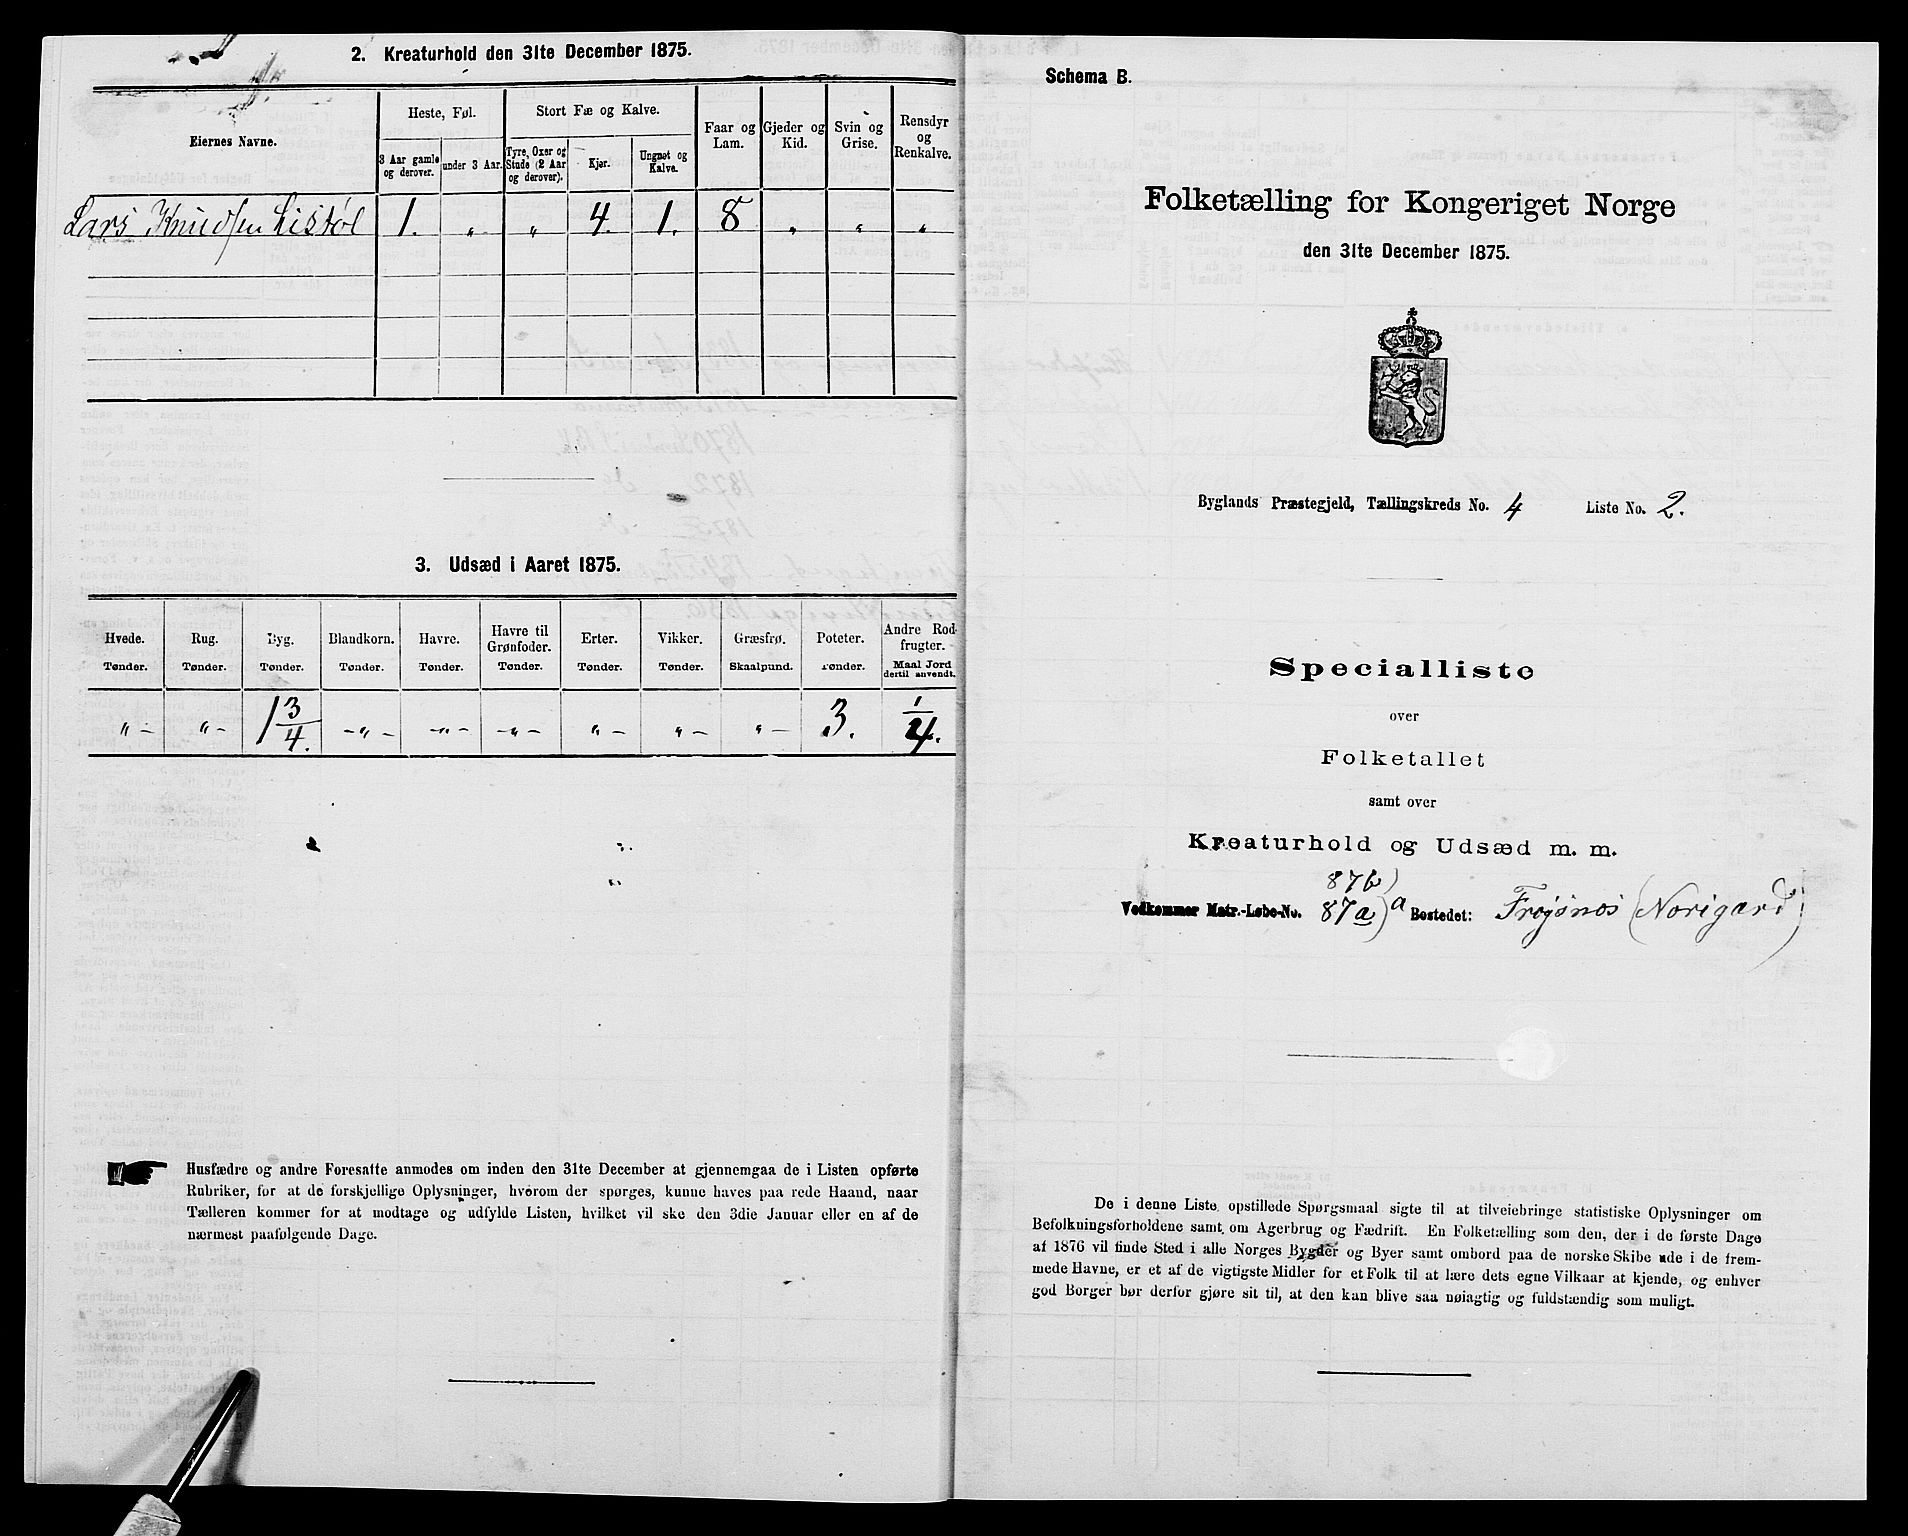 2. Kreaturhold den 31te December 1875.
Eiernes Navne.
Heste, Føl.
3 Aar gamle og derover.
under 3 Aar.
Stort Fæ og Kalve.
Tyre, Oxer og Stude (2 Aar og derover).
Kjør.
Ungnøt og Kalve.
Faar og Lam.
Gjeder og Kid.
Svin og Grise.
Rensdyr og Renkalve.
Lars Knudsen Listøl 1. " " 4. 1. 8 " " "
3. Udsæd i Aaret 1875.
Hvede. Rug. Byg. Blandkorn. Havre. Havre til Grønfoder. Erter. Vikker. Græsfrø. Poteter. Andre Rodfrugter.
Tønder. Tønder. Tønder. Tønder. Tønder. Tønder. Tønder. Tønder. Skaalpund. Tønder. Maal Jord dertil anvendt.
"– "– 1 3/4. –"– –"– –"– "– "– "– 3. 1/4.
Husfædre og andre Foresatte anmodes om inden den 31te December at gjennemgaa de i Listen opførte
Rubriker, for at de forskjellige Oplysninger, hvorom der spørges, kunne haves paa rede Haand, naar
Tælleren kommer for at modtage og udfylde Listen, hvilket vil ske den 3die Januar eller en af de
nærmest paafølgende Dage.
Schema B.
Folketælling for Kongeriget Norge
den 31te December 1875.
Byglands Præstegjeld, Tællingskreds No. 4 Liste No. 2.
Specialliste
over
Folketallet
samt over
Kreaturhold og Udsæd m. m.
87b)
Vedkommer Matr.-Løbe-No. 87a)a Bostedet: Frøjsnæs (Norigard)
De i denne Liste opstillede Spørgsmaal sigte til at tilveiebringe statistiske Oplysninger om
Befolkningsforholdene samt om Agerbrug og Fædrift. En Folketælling som den, der i de første Dage
af 1876 vil finde Sted i alle Norges Bygder og Byer samt ombord paa de norske Skibe ude i de frem-
mede Havne, er et af de vigtigste Midler for et Folk til at lære dets egne Vilkaar at kjende, og enhver
god Borger bør derfor gjøre sit til, at den kan blive saa nøiagtig og fuldstændig som muligt.